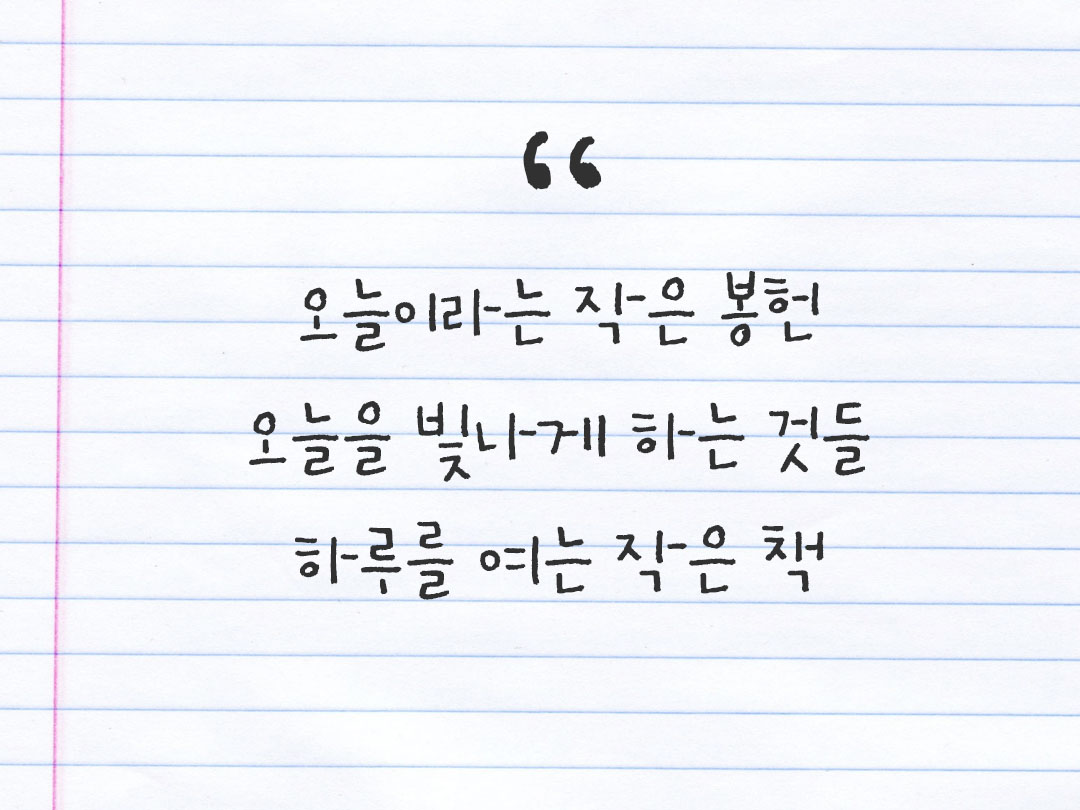 “
오늘이라는 작은 봉헌
오늘을 빛나게 하는 것들
하루를 여는 작은 책